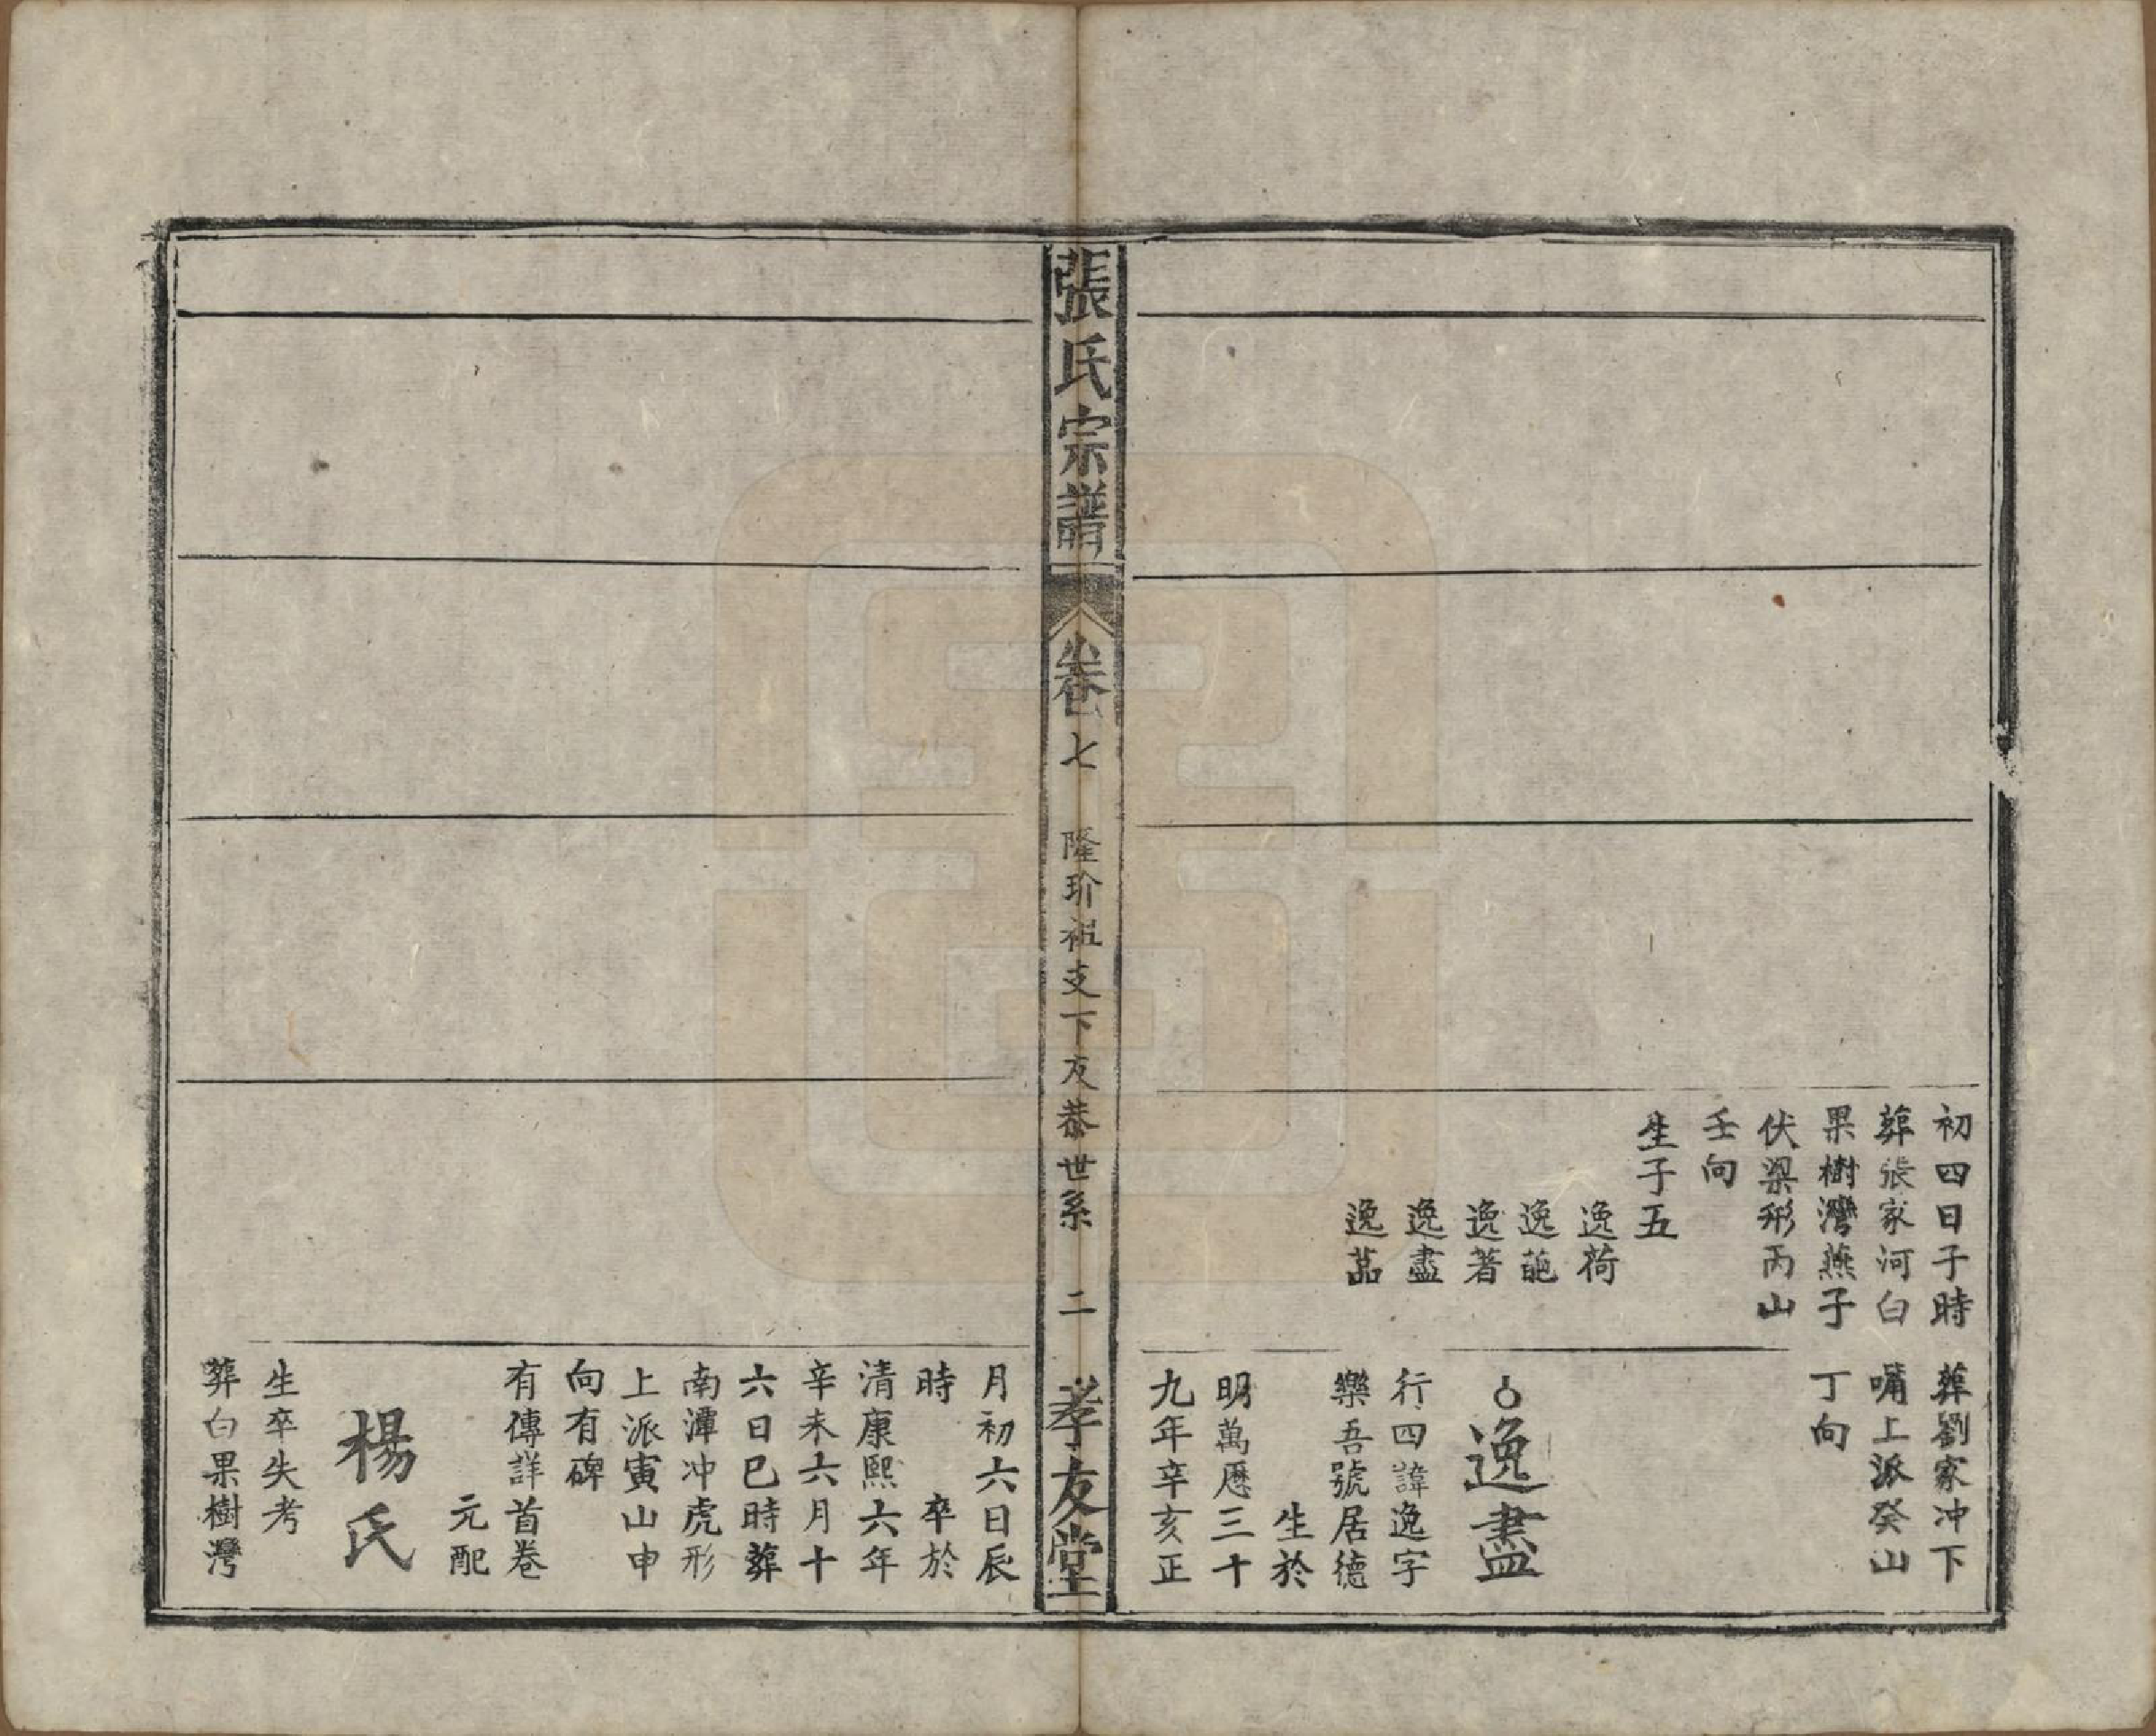 初四日子時
葬張家河白
果樹灣燕子
伏梁形丙山
壬向
生子五
逸荷
逸葩
逸著
逸盡
逸茄
葬劉家冲下
嘴上派癸山
丁向
逸盡
行四諱逸字
樂吾號居德
生於
明萬曆三十
九年辛亥正
張氏宗譜
卷七
隆玠祖支下友恭世系
二
孝友堂
月初六日辰
時 卒於
清康熙六年
辛未六月十
六日巳時葬
南潭冲虎形
上派寅山申
向有碑
有傳詳首卷
元配
楊氏
生卒失考
葬白果樹灣